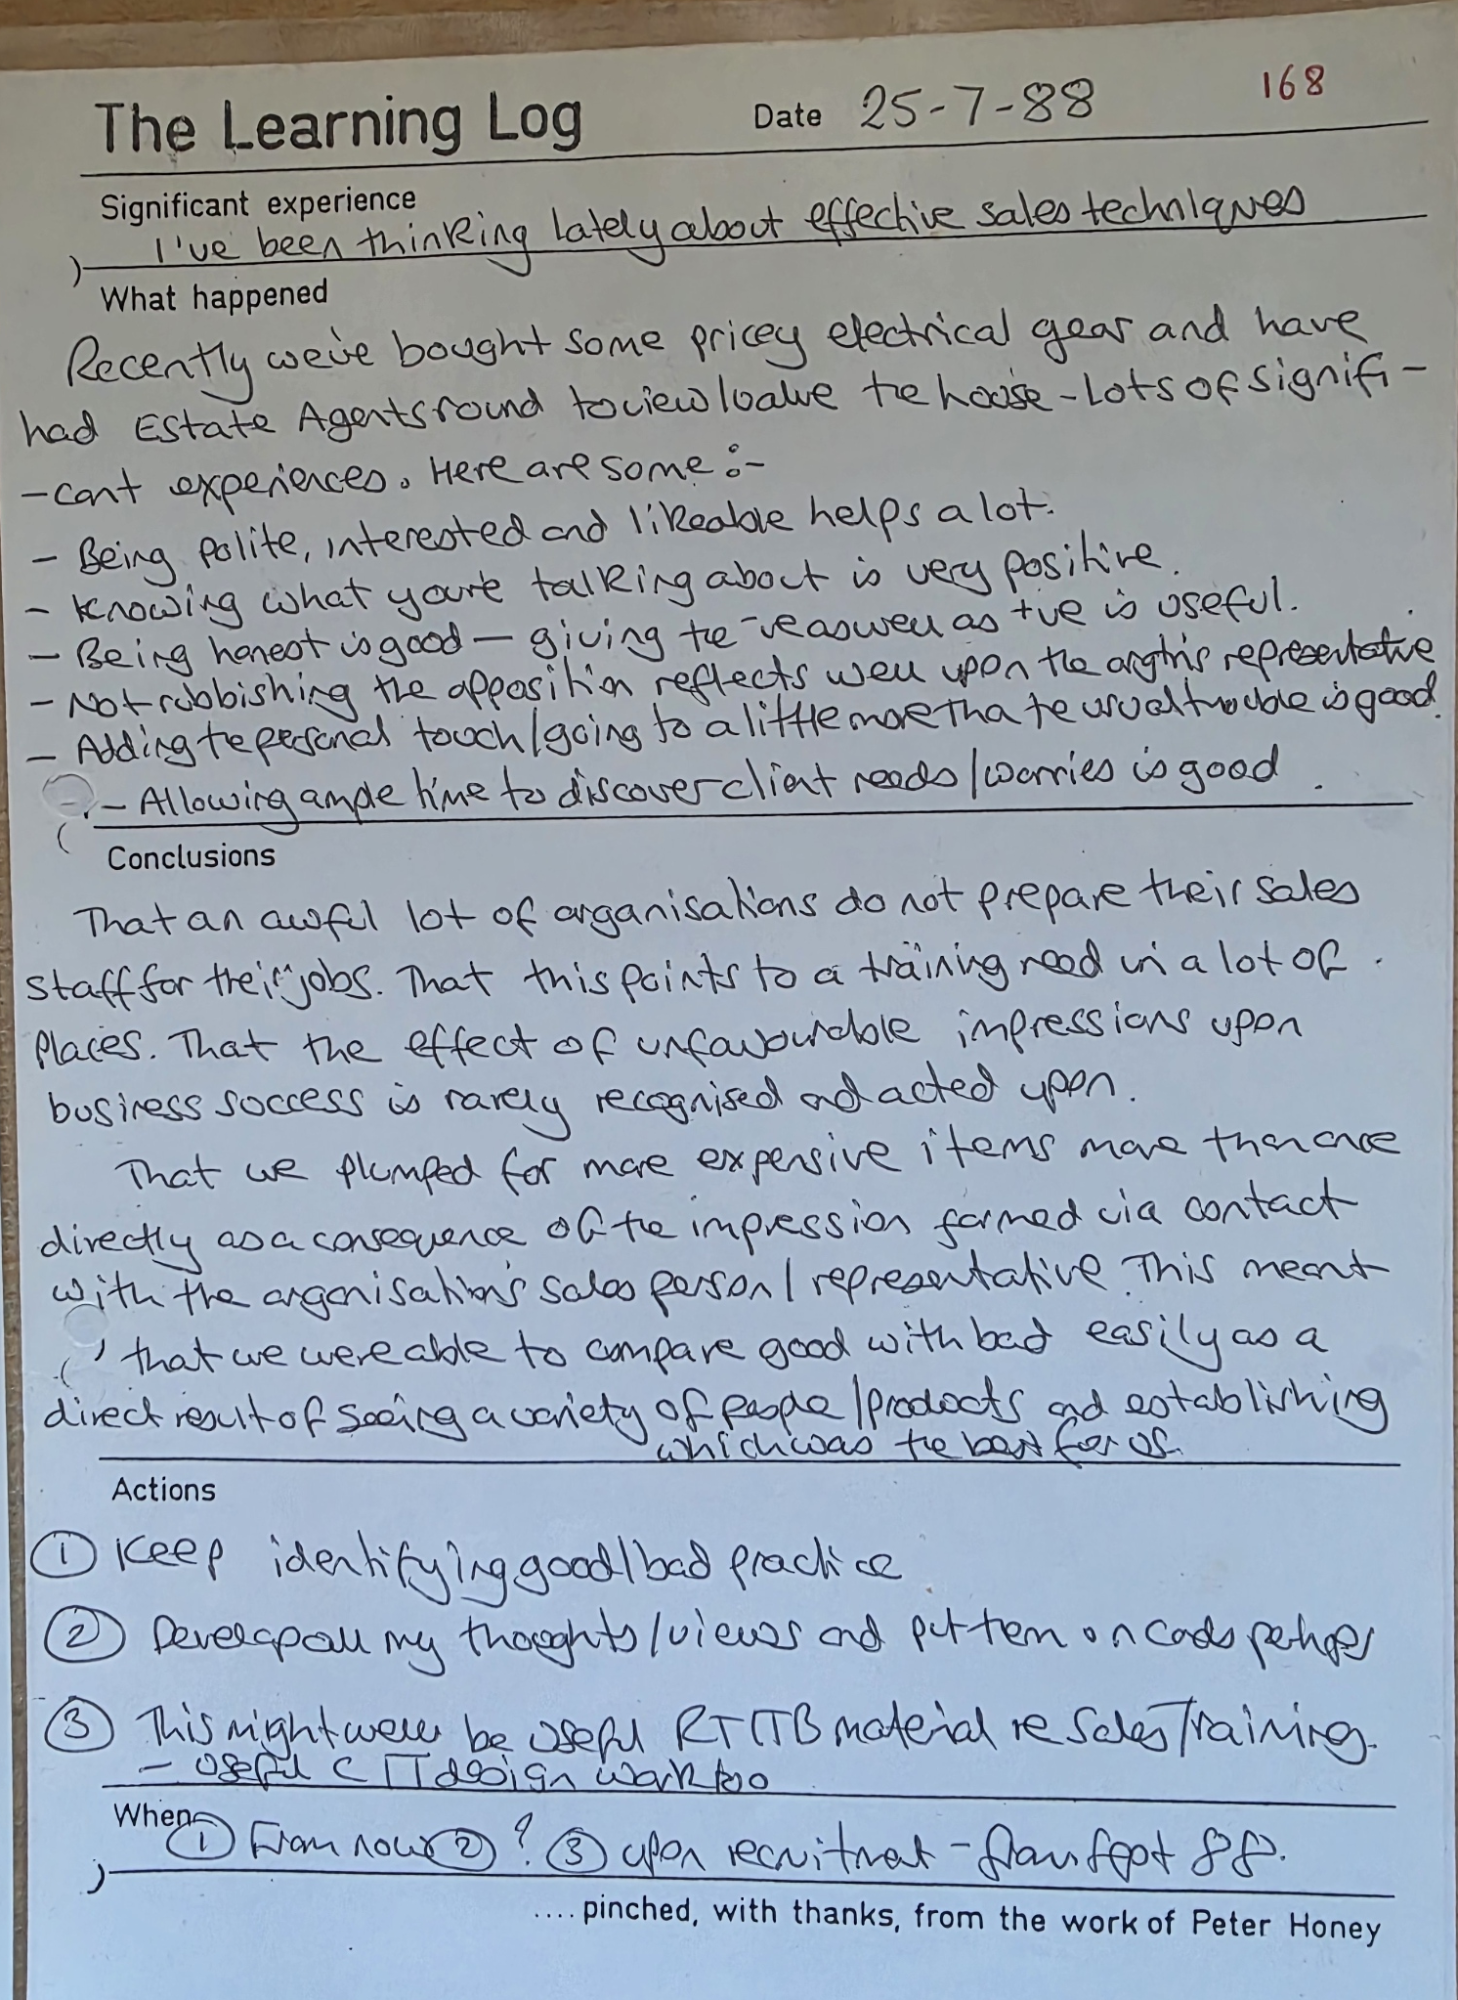 The Learning Log Date 25-7-88 168
Significant experience
I've been thinking lately about effective sales techniques
What happened
Recently we've bought some pricey electrical gear and have
had Estate Agents round to view/value the house - Lots of signifi-
-cant experiences. Here are some :-
- Being polite, interested and likeable helps a lot.
- Knowing what you're talking about is very positive.
- Being honest is good — giving the -ve as well as +ve is useful.
- Not rubbishing the opposition reflects well upon the representative
- Adding the personal touch/going to a little more tha te usual trouble is good.
- Allowing ample time to discover client needs/worries is good.
Conclusions
That an awful lot of organisations do not prepare their sales
staff for their jobs. That this points to a training need in a lot of
places. That the effect of unfavourable impressions upon
business success is rarely recognised and acted upon.
That we plumped for more expensive items more than once
directly as a consequence of the impression formed via contact
with the organisation's sales person/representative. This meant
that we were able to compare good with bad easily as a
direct result of seeing a variety of people/products and establishing
which was the best for us.
Actions
① Keep identifying good/bad practice
② Develop all my thoughts/views and put tem on cards perhaps
③ This might well be useful RTITB material re Sales Training.
- useful C IT design work too
When
① From now ② ? ③ upon recruitment - from Sept 88.
.... pinched, with thanks, from the work of Peter Honey